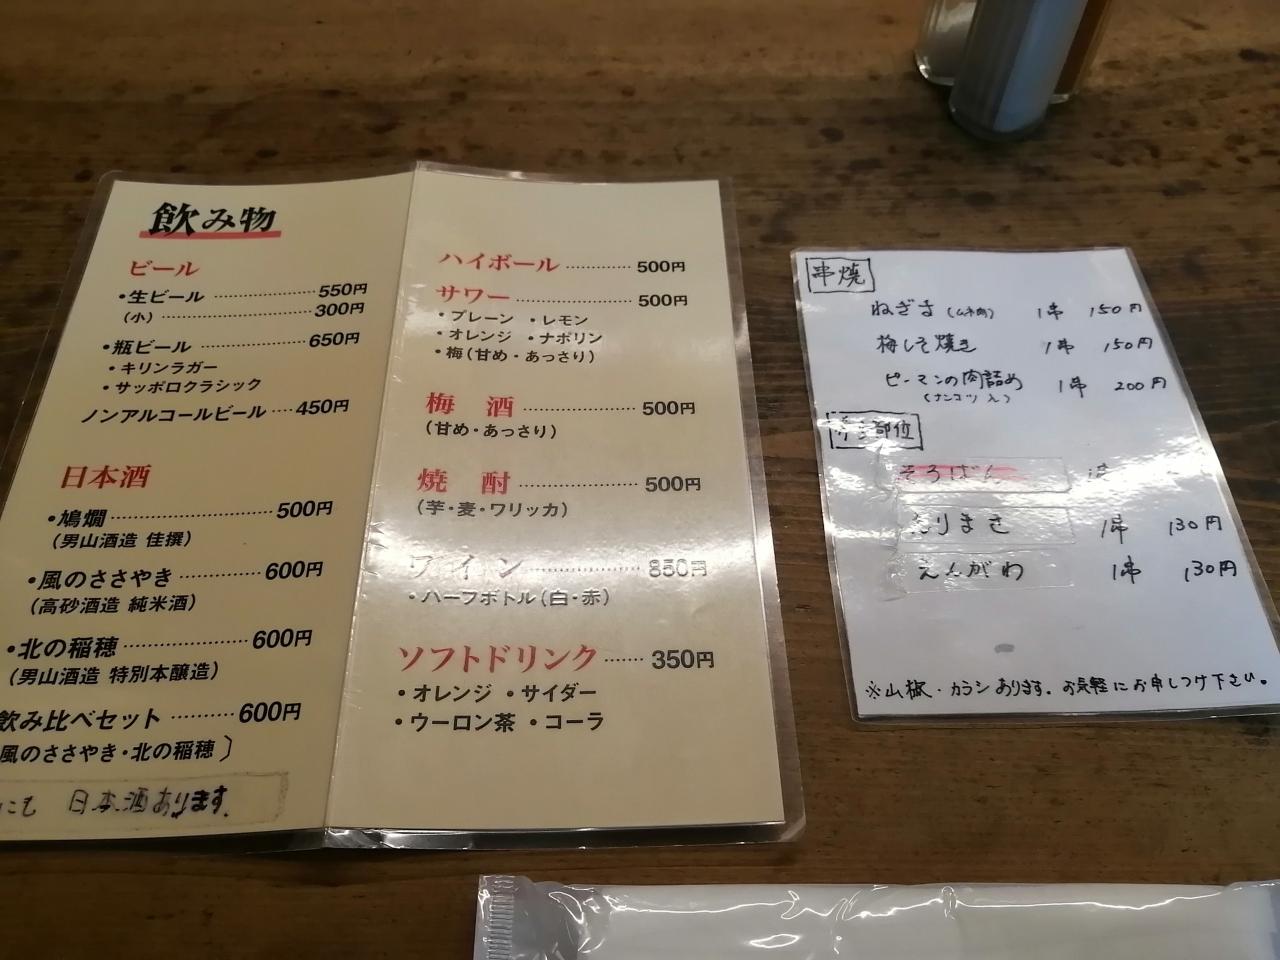 飲み物
ビール
・生ビール ………… 550円
(小) ………… 300円
・瓶ビール ………… 650円
・キリンラガー
・サッポロクラシック
ノンアルコールビール …… 450円
日本酒
・鳩燗 ………… 500円
(男山酒造 佳撰)
・風のささやき ………… 600円
(高砂酒造 純米酒)
・北の稲穂 ………… 600円
(男山酒造 特別本醸造)
飲み比べセット ………… 600円
風のささやき・北の稲穂〕
にも 日本酒あります。
ハイボール ………… 500円
サワー ………… 500円
・プレーン ・レモン
・オレンジ ・ナポリン
・梅(甘め・あっさり)
梅 酒 ………… 500円
(甘め・あっさり)
焼 酎 ………… 500円
(芋・麦・ワリッカ)
ワイン ………… 850円
・ハーフボトル(白・赤)
ソフトドリンク …… 350円
・オレンジ ・サイダー
・ウーロン茶 ・コーラ
串焼
ねぎま(ムネ肉) 1串 150円
梅しそ焼き 1串 150円
ピーマンの肉詰め 1串 200円
(ナンコツ入)
部位
そろばん 1串
おりまさ 1串 130円
えんがわ 1串 130円
※山椒・カラシあります。お気軽にお申しつけ下さい。